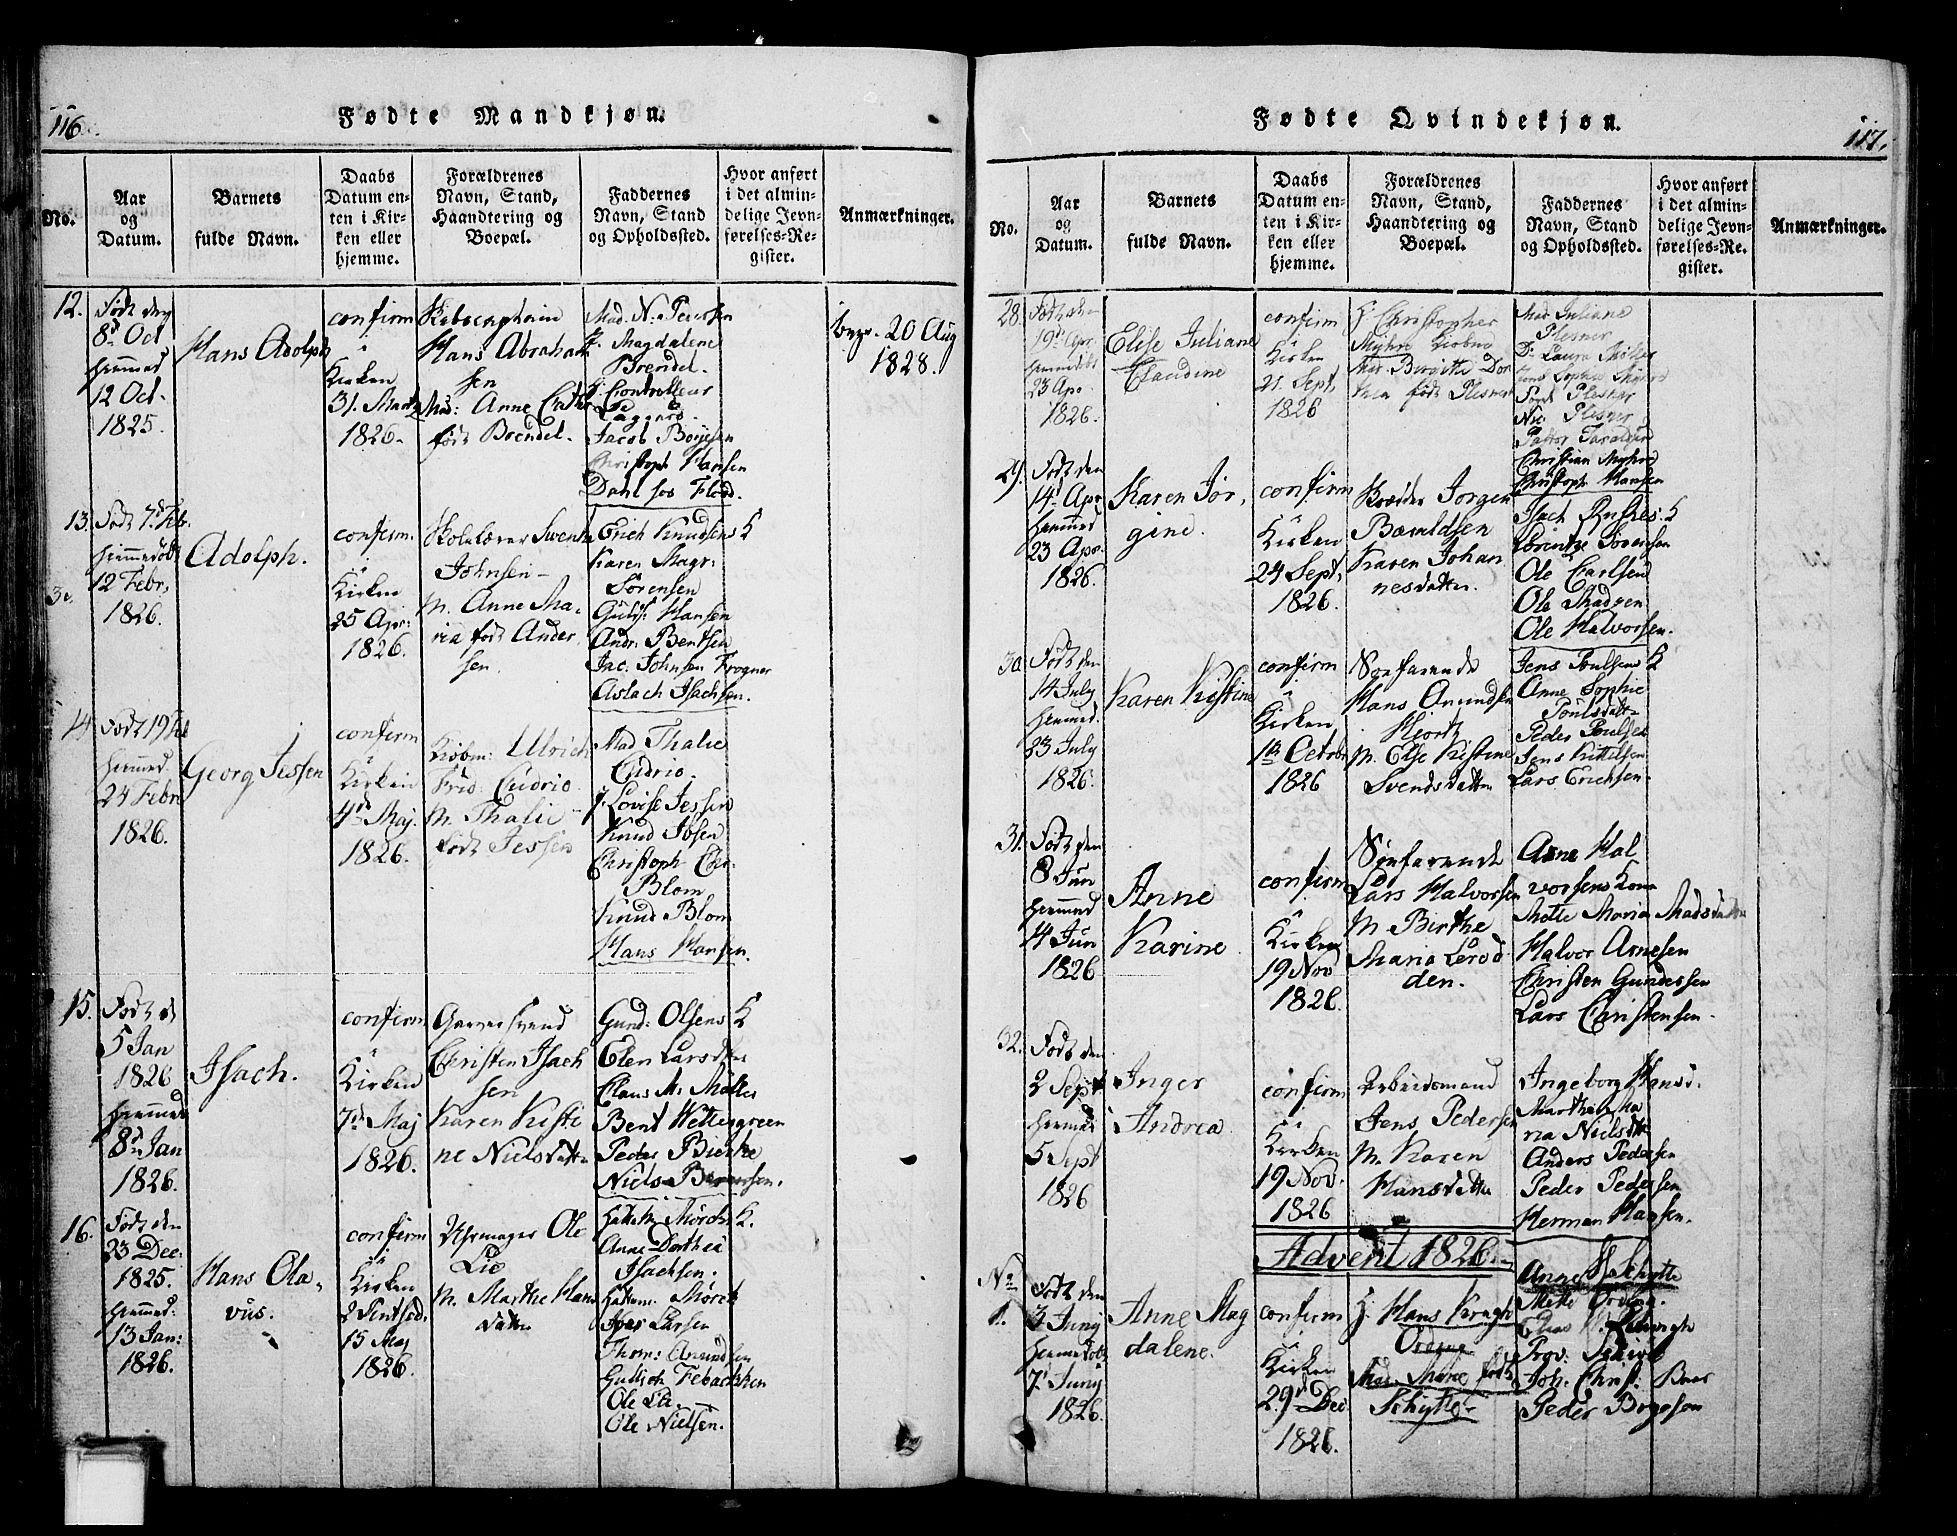 116.
Fødte Mandkjøn.
No.
Aar
og
Datum.
Barnets
fulde Navn.
Daabs
Datum en-
ten i Kir-
ken eller
hjemme.
Forældrenes
Navn, Stand,
Haandtering og
Boepæl.
Faddernes
Navn, Stand
og Opholdssted.
Hvor anført
i det almin-
delige Jevn-
førelses-Re-
gister.
Anmærkninger.
12.
Født den
8d Oct
hjemmed
12 Oct.
1825.
Hans Adolph
confirm
i
Kirken
31. Martz
1826.
Hans Abraham
sen
Mad: Anne Cathr
født Brendel.
Mad. N. Petersen
J. Magdalene
Brendel.
Jacob Boyesen
Christoph Hansen
Dahl hos Flood.
20 Aug
1828.
13.
Født 7d Feb.
hjemmedøbt
12 Febr.
1826.
Adolph.
confirm.
i
Kirken
25 Apr:
1826.
Skolelærer Svend
Johnsen
M. Anne Ma-
ria født Ander
sen.
Erich Knudsens K
Karen Magr:
Sørensen
Gulif: Hansen
Andr. Bentsen
Jac. Johnsen Frogner
Aslach Isachsen.
14
Født 19 Feb
hjemmed
24 Febr
1826.
Georg Jessen
confirm
i
Kirken
4de Maj.
1826.
Kiøbm: Ulrich
Frid. Cudrio
M. Thalie
født Jessen
Mad Thalie
Cudrio.
J. Lovise Jessen
Knud Ibsen
Christoph Chr.
Blom
Knud Blom
Hans Hansen.
15.
Født d
5 Jan
1826
hjemmed
8d Jan
1826.
Isach.
confirm
i
Kirken
7de Maj
1826.
Garversvend
Christen Isach
sen
Karen Kisti
ne Nielsdatter
Gund: Olsens K
Elen Larsdtr
Claus M. Møller
Bent Wettergreen
Peder Bierke
Niels
16.
Født den
23 Dec:
1825.
hjemmed:
13 Jan:
1826.
Hans Ola-
vus.
confirm
i
Kirken
2 Pentsed.
15 Maj
1826.
Uhrmager Ole
Lie
M. Marthe Hans
datter
Hakem Mørchs K.
Anne Dorthea
Isachsen.
Hakem: Mørch
Iver Larsen
Thom: Amundsen
Ole Lie.
Ole Nielsen.
117.
Fødte Qvindekjøn.
No.
Aar
og
Datum.
Barnets
fulde Navn.
Daabs
Datum en-
ten i Kir-
ken eller
hjemme.
Forældrenes
Navn, Stand,
Haandtering og
Boepæl.
Faddernes
Navn, Stand
og Opholdssted.
Hvor anført
i det almin-
delige Jevn-
førelses-Re-
gister.
Anmærkninger.
28.
Født den
19d Apr.
hjemmedøbt
23 Apr.
1826.
Elise Juliane
Claudine
confirm
i
Kirken
21 Sept,
1826
H. Christopher
Myhre
Mad. Birgitte Dor
thea født Plesner
Mad Juliane
Plesner
D: Laura Møller
Plesner
Nic Plesner
Pastor
Christian Myhre
Christoph Hansen
29.
Født den
14d Apr
hjemmed
23 Apr.
1826.
Karen Jør,
gine.
confirm
i
Kirken
24 Sept,
1826.
Jørgen
Karen Johan
nesdatter.
Isach K
Lorentze Sørensen
Ole Carlsen
Ole Madsen
Ole Halvorsen.
30.
Født den
14 July
hjemmed.
23 July
1826.
Karen Kistine
confirm
i
Kirken
1te Octobr
1826
Søefarende
Hans Amundsen
Hjort
M. Else Kistine
Svendsdatter
Jens Poulsens K
Anne Sophie
Poulsdatr
Peder Poulsen
Jens Kittilsen
Lars Erichsen.
31.
Født den
8 Jun
hjemmed
14 Jun
1826
Anne
Karine
confirm
i
Kirken
19 Nov
1826.
Søefarende
Lars Halvorsen
M. Birthe
Maria
den.
Anne Hal
vorsens Kone
Mette Maria Madsdatter
Halvor Arnesen
Christen Gundersen
Lars Christensen.
32.
Født den
2 Sept
hjemmed
5 Sept
1826
Inger
Andrea
confirm
i
Kirken
19 Nov.
1826
Arbeidsmand
Jens Pedersen
M. Karen
Hansdatter
Ingeborg Hansd.
Marthe Ma
ria Nielsdtr
Anders Pedersen
Peder Pedersen
Herman Hansen.
Advent 1826.
No
1.
Født den
3 Junÿ
hjemmedøbt
7d Junÿ
1826.
Anne Mag
dalene.
confirm
i
Kirken
29de Dec
1826.
H. Hans Kragh
Mad. født
Schytte
Anne Schytte
Joh. Christ:
Peder